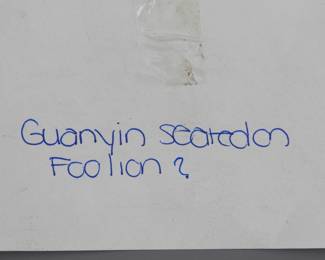 Guanyin seated on
Foo lion ?